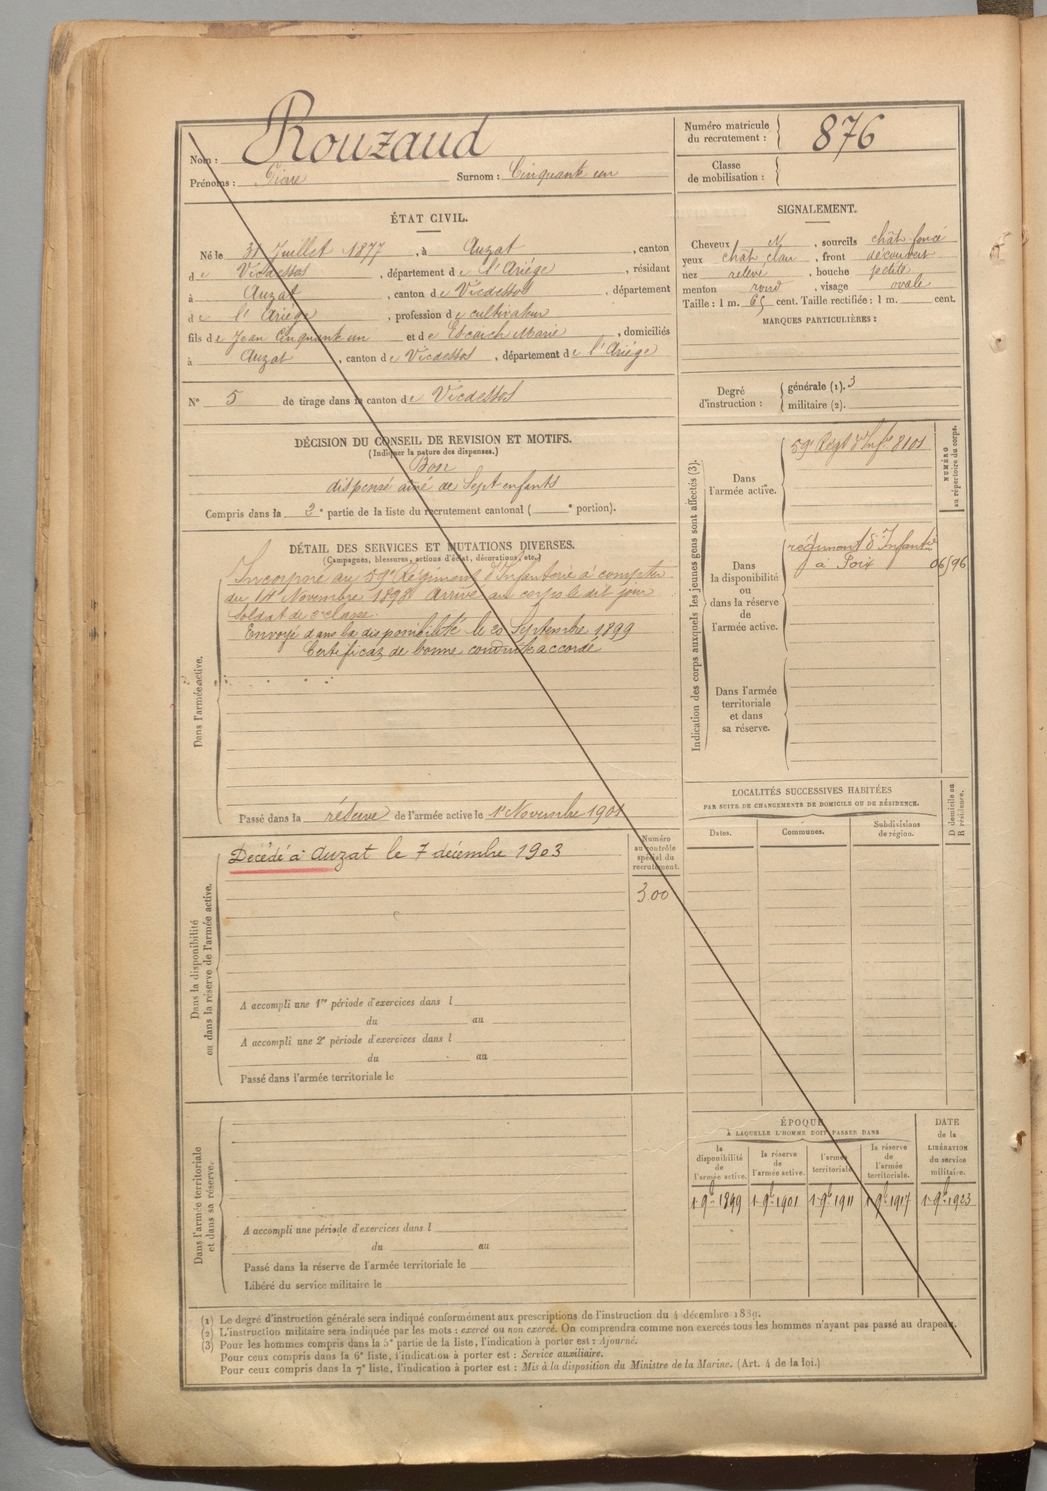 Nom : Rouzaud
Prénoms : Surnom : Cinquante un
Numéro matricule
du recrutement : 876
Classe
de mobilisation :
ÉTAT CIVIL.
Né le 31 Juillet 1877, à Auzat, canton
de Vicdessos, département de l'Ariége, résidant
à Auzat, canton de Vicdessos, département
de l'Ariége, profession de cultivateur
fils de Jean Cinquante un et de Escaich Marie, domiciliés
à Auzat, canton de Vicdessos, département de l'Ariége
N° 5 de tirage dans le canton de Vicdessos
SIGNALEMENT.
Cheveux N, sourcils chât foncé
yeux chât clair, front découvert
nez relevé, bouche petite
menton rond, visage ovale
Taille : 1 m. 65 cent. Taille rectifiée : 1 m. cent.
MARQUES PARTICULIÈRES :
Degré
d'instruction :
générale (1). 3
militaire (2).
DÉCISION DU CONSEIL DE REVISION ET MOTIFS.
(Indiquer la nature des dispenses.)
Bon
dispensé ainé de Sept enfants
Compris dans la 2e partie de la liste du recrutement cantonal ( e portion).
DÉTAIL DES SERVICES ET MUTATIONS DIVERSES.
(Campagnes, blessures, actions d'éclat, décorations, etc.)
Dans l'armée active.
Incorporé au 59e Régiment d'Infanterie à compter
du 14 Novembre 1898 arrivé au corps le dit jour
soldat de 2e classe.
Envoyé dans la disponibilité le 20 Septembre 1899
Certificat de bonne conduite accordé
Passé dans la réserve de l'armée active le 1er Novembre 1901
Indication des corps auxquels les jeunes gens sont affectés (3).
NUMÉRO
au répertoire du corps.
Dans
l'armée active.
59e Régt d'Infie 8101
Dans
la disponibilité
ou
dans la réserve
de
l'armée active.
régiment d'Infantie
à Foix
06/96
Dans l'armée
territoriale
et dans
sa réserve.
LOCALITÉS SUCCESSIVES HABITÉES
PAR SUITE DE CHANGEMENTS DE DOMICILE OU DE RÉSIDENCE.
D domicile ou
R résidence.
Dates.
Communes.
Subdivisions
de région.
Dans la disponibilité
ou dans la réserve de l'armée active.
Décédé à Auzat le 7 décembre 1903
Numéro
au contrôle
spécial du
recrutement.
300
A accompli une 1re période d'exercices dans l
du au
A accompli une 2e période d'exercices dans l
du au
Passé dans l'armée territoriale le
Dans l'armée territoriale
et dans sa réserve.
A accompli une période d'exercices dans l
du au
Passé dans la réserve de l'armée territoriale le
Libéré du service militaire le
ÉPOQUE
À LAQUELLE L'HOMME DOIT PASSER DANS
la
disponibilité
de
l'armée active.
la réserve
de
l'armée active.
l'armée
territoriale.
la réserve
de
l'armée
territoriale.
DATE
de la
LIBÉRATION
du service
militaire.
1er 9bre 1899 1er 9bre 1901 1er 9bre 1911 1er 9bre 1917 1er 9bre 1923
(1) Le degré d'instruction générale sera indiqué conformément aux prescriptions de l'instruction du 4 décembre 1889.
(2) L'instruction militaire sera indiquée par les mots : exercé ou non exercé. On comprendra comme non exercés tous les hommes n'ayant pas passé au drapeau.
(3) Pour les hommes compris dans la 5e partie de la liste, l'indication à porter est : Ajourné.
Pour ceux compris dans la 6e liste, l'indication à porter est : Service auxiliaire.
Pour ceux compris dans la 7e liste, l'indication à porter est : Mis à la disposition du Ministre de la Marine. (Art. 4 de la loi.)